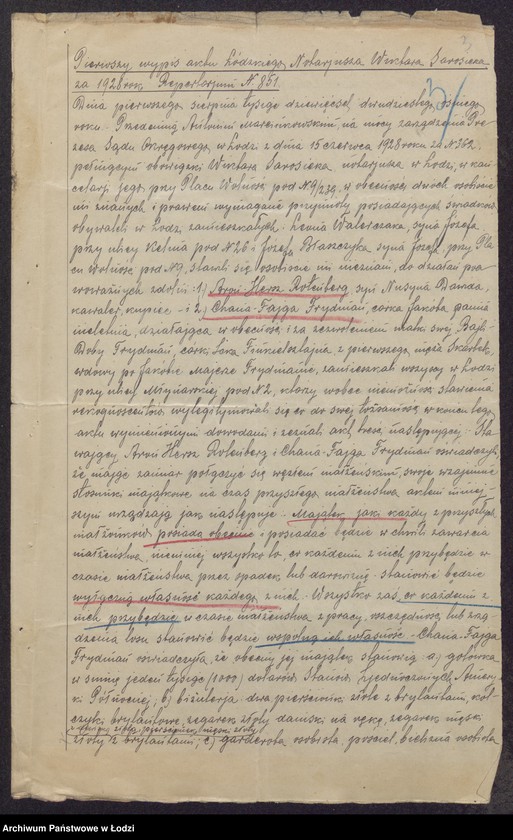 Pierwszy wypis aktu Łódzkiego Notarjusza Wiktora Sarosieka
za 1928 rok Repertorjum N. 851.
Dnia pierwszego sierpnia tysiąc dziewięćset dwudziestego ósmego
roku. Przedemną, Antonim Marcinkowskim, na mocy zarządzenia Pre-
zesa Sądu Okręgowego w Łodzi z dnia 15 czerwca 1928 roku za N 362
pełniącym obowiązki Wiktora Sarosieka, notarjusza w Łodzi, w kan-
celarji jego przy Placu Wolności pod N 9/239, w obecności dwóch osobiście
mi znanych i prawem wymagane przymioty posiadających świadków
obywateli w Łodzi zamieszkałych: Leona Walerczaka, syna Józefa,
przy ulicy pod N 26 i Józefa syna Józefa, przy Pla-
cu Wolności pod N 9, stawili się osobiście mi nieznani, do działań pra-
wnych zdolni: 1) Aron Hersz Rotenberg, syn Nusyna Dawida,
kawaler, kupiec - i 2) Chana-Fajga Frydman, córka Jakóba, panna
nieletnia, działająca w obecności i za zezwoleniem matki swej, Bajli-
Doby Frydman, córki Finkielsztajna z pierwszego męża
wdowy po Jakóbie Majerze Frydmanie, zamieszkali wszyscy w Łodzi
przy ulicy Młynarskiej pod N 2, którzy wobec niemożności stawienia
rekognoscentów wylegitymowali się co do swej tożsamości w końcu tego
aktu wymienionymi dowodami i zeznali akt treści następującej: Sta-
wający Aron Hersz Rotenberg i Chana-Fajga Frydman oświadczyli,
że mając zamiar połączyć się węzłem małżeńskim, swoje wzajemne
stosunki majątkowe na czas przyszłego małżeństwa aktem niniej-
szym urządzają jak następuje: Majątek, jaki każdy z przyszłych
małżonków posiada obecnie i posiadać będzie w chwili zawarcia
małżeństwa, niemniej wszystko to co każdemu z nich przybędzie w
czasie małżeństwa przez spadek lub darowiznę - stanowić będzie
wyłączną własność każdego z nich. Wszystko zaś, co każdemu z
nich przybędzie w czasie małżeństwa z pracy, oszczędności lub zrzą-
dzenia losu stanowić będzie wspólną ich własność. Chana-Fajga
Frydman oświadczyła, że obecny jej majątek stanowią: a) gotówka
w sumie jeden tysiąc (1000) dolarów Stanów Zjednoczonych Amery-
ki Północnej, b) biżuterja: dwa pierścionki złote z brylantami, kol-
czyki brylantowe, zegarek złoty damski na rękę, zegarek męski
złoty
złoty z brylantami; c) garderoba osobista, pościel, bielizna osobista
Archiwum Państwowe w Łodzi